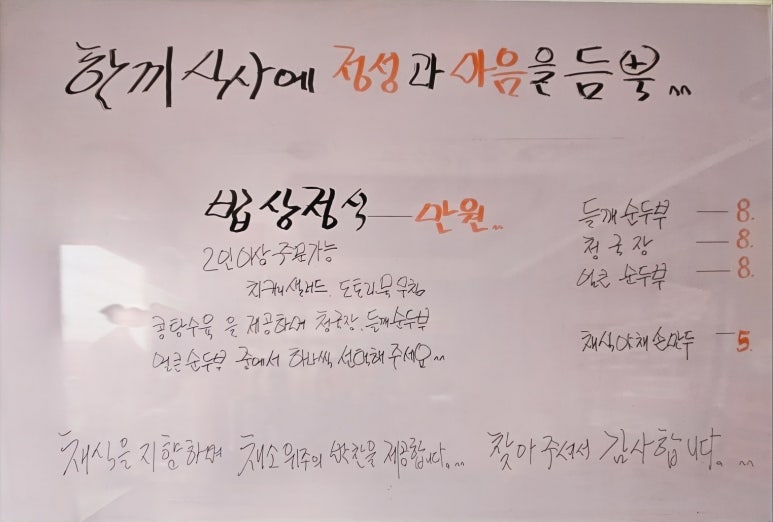 한끼 식사에 정성과 마음을 듬뿍^^
밥상정식 — 만원^^
2인이상 주문가능
치커리샐러드, 도토리묵무침
콩탕수육 을 제공하며 청국장, 들깨순두부
얼큰순두부 중에서 하나씩 선택해 주세요^^
들깨순두부 — 8.
청국장 — 8.
얼큰 순두부 — 8.
채식야채손만두 — 5.
채식을 지향하며 채소위주의 반찬을 제공합니다.^^ 찾아주셔서 감사합니다.^^